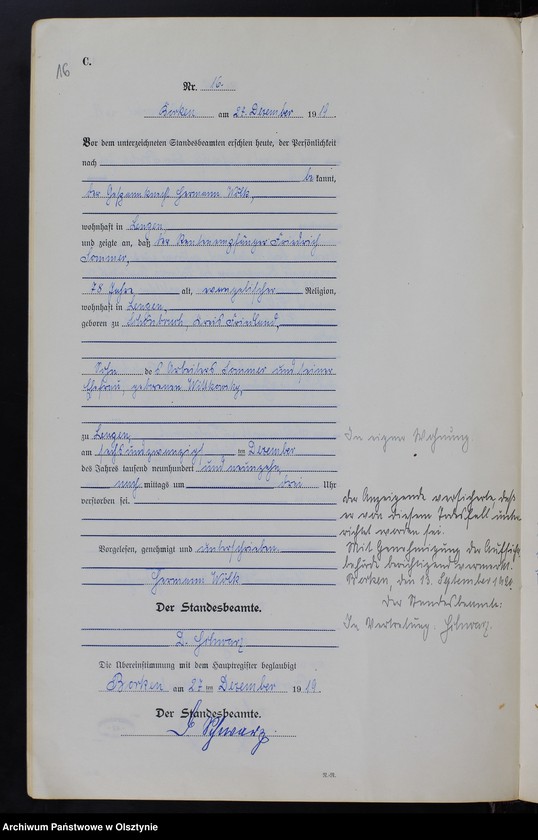 16
C.
Nr. 16.
Borken am 27. Dezember 1919.
Vor dem unterzeichneten Standesbeamten erschien heute, der Persönlichkeit
nach
bekannt,
der Gespannknecht Hermann Wölk,
wohnhaft in Lenzen,
und zeigte an, daß der Rentenempfänger Friedrich
Sommer,
78 Jahre alt, evangelischer Religion,
wohnhaft in Lenzen,
geboren zu Schönbruch, Kreis Friedland,
Sohn des Arbeiters Sommer und seiner
Ehefrau, geborenen
zu Lenzen,
am sechsundzwanzigsten Dezember
des Jahres tausend neunhundert und neunzehn
nachmittags um drei Uhr
verstorben sei.
Vorgelesen, genehmigt und unterschrieben
Hermann Wölk
Der Standesbeamte.
Schwarz
Die Übereinstimmung mit dem Hauptregister beglaubigt
Borken am 27 ten Dezember 1919.
Der Standesbeamte.
Schwarz
In eigener Wohnung
Der Anzeigende versicherte, daß
er von diesem Todesfall unter-
richtet worden sei.
Mit Genehmigung der Aufsichts
behörde berichtigend vermerkt.
Borken, den 13. September
Der Standesbeamte:
In Vertretung: Schwarz.
Archiwum Państwowe w Olsztynie